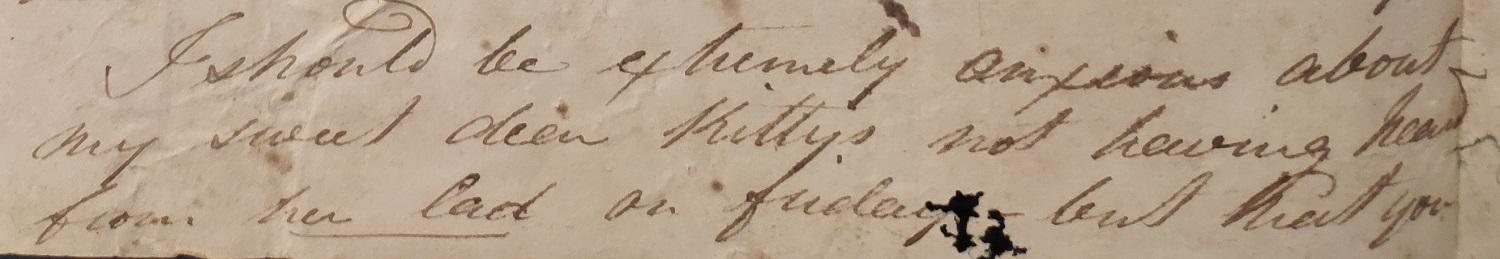 I should be extremely anxious about
my sweet dear Kittys not having heard
from her lad on friday - but that you